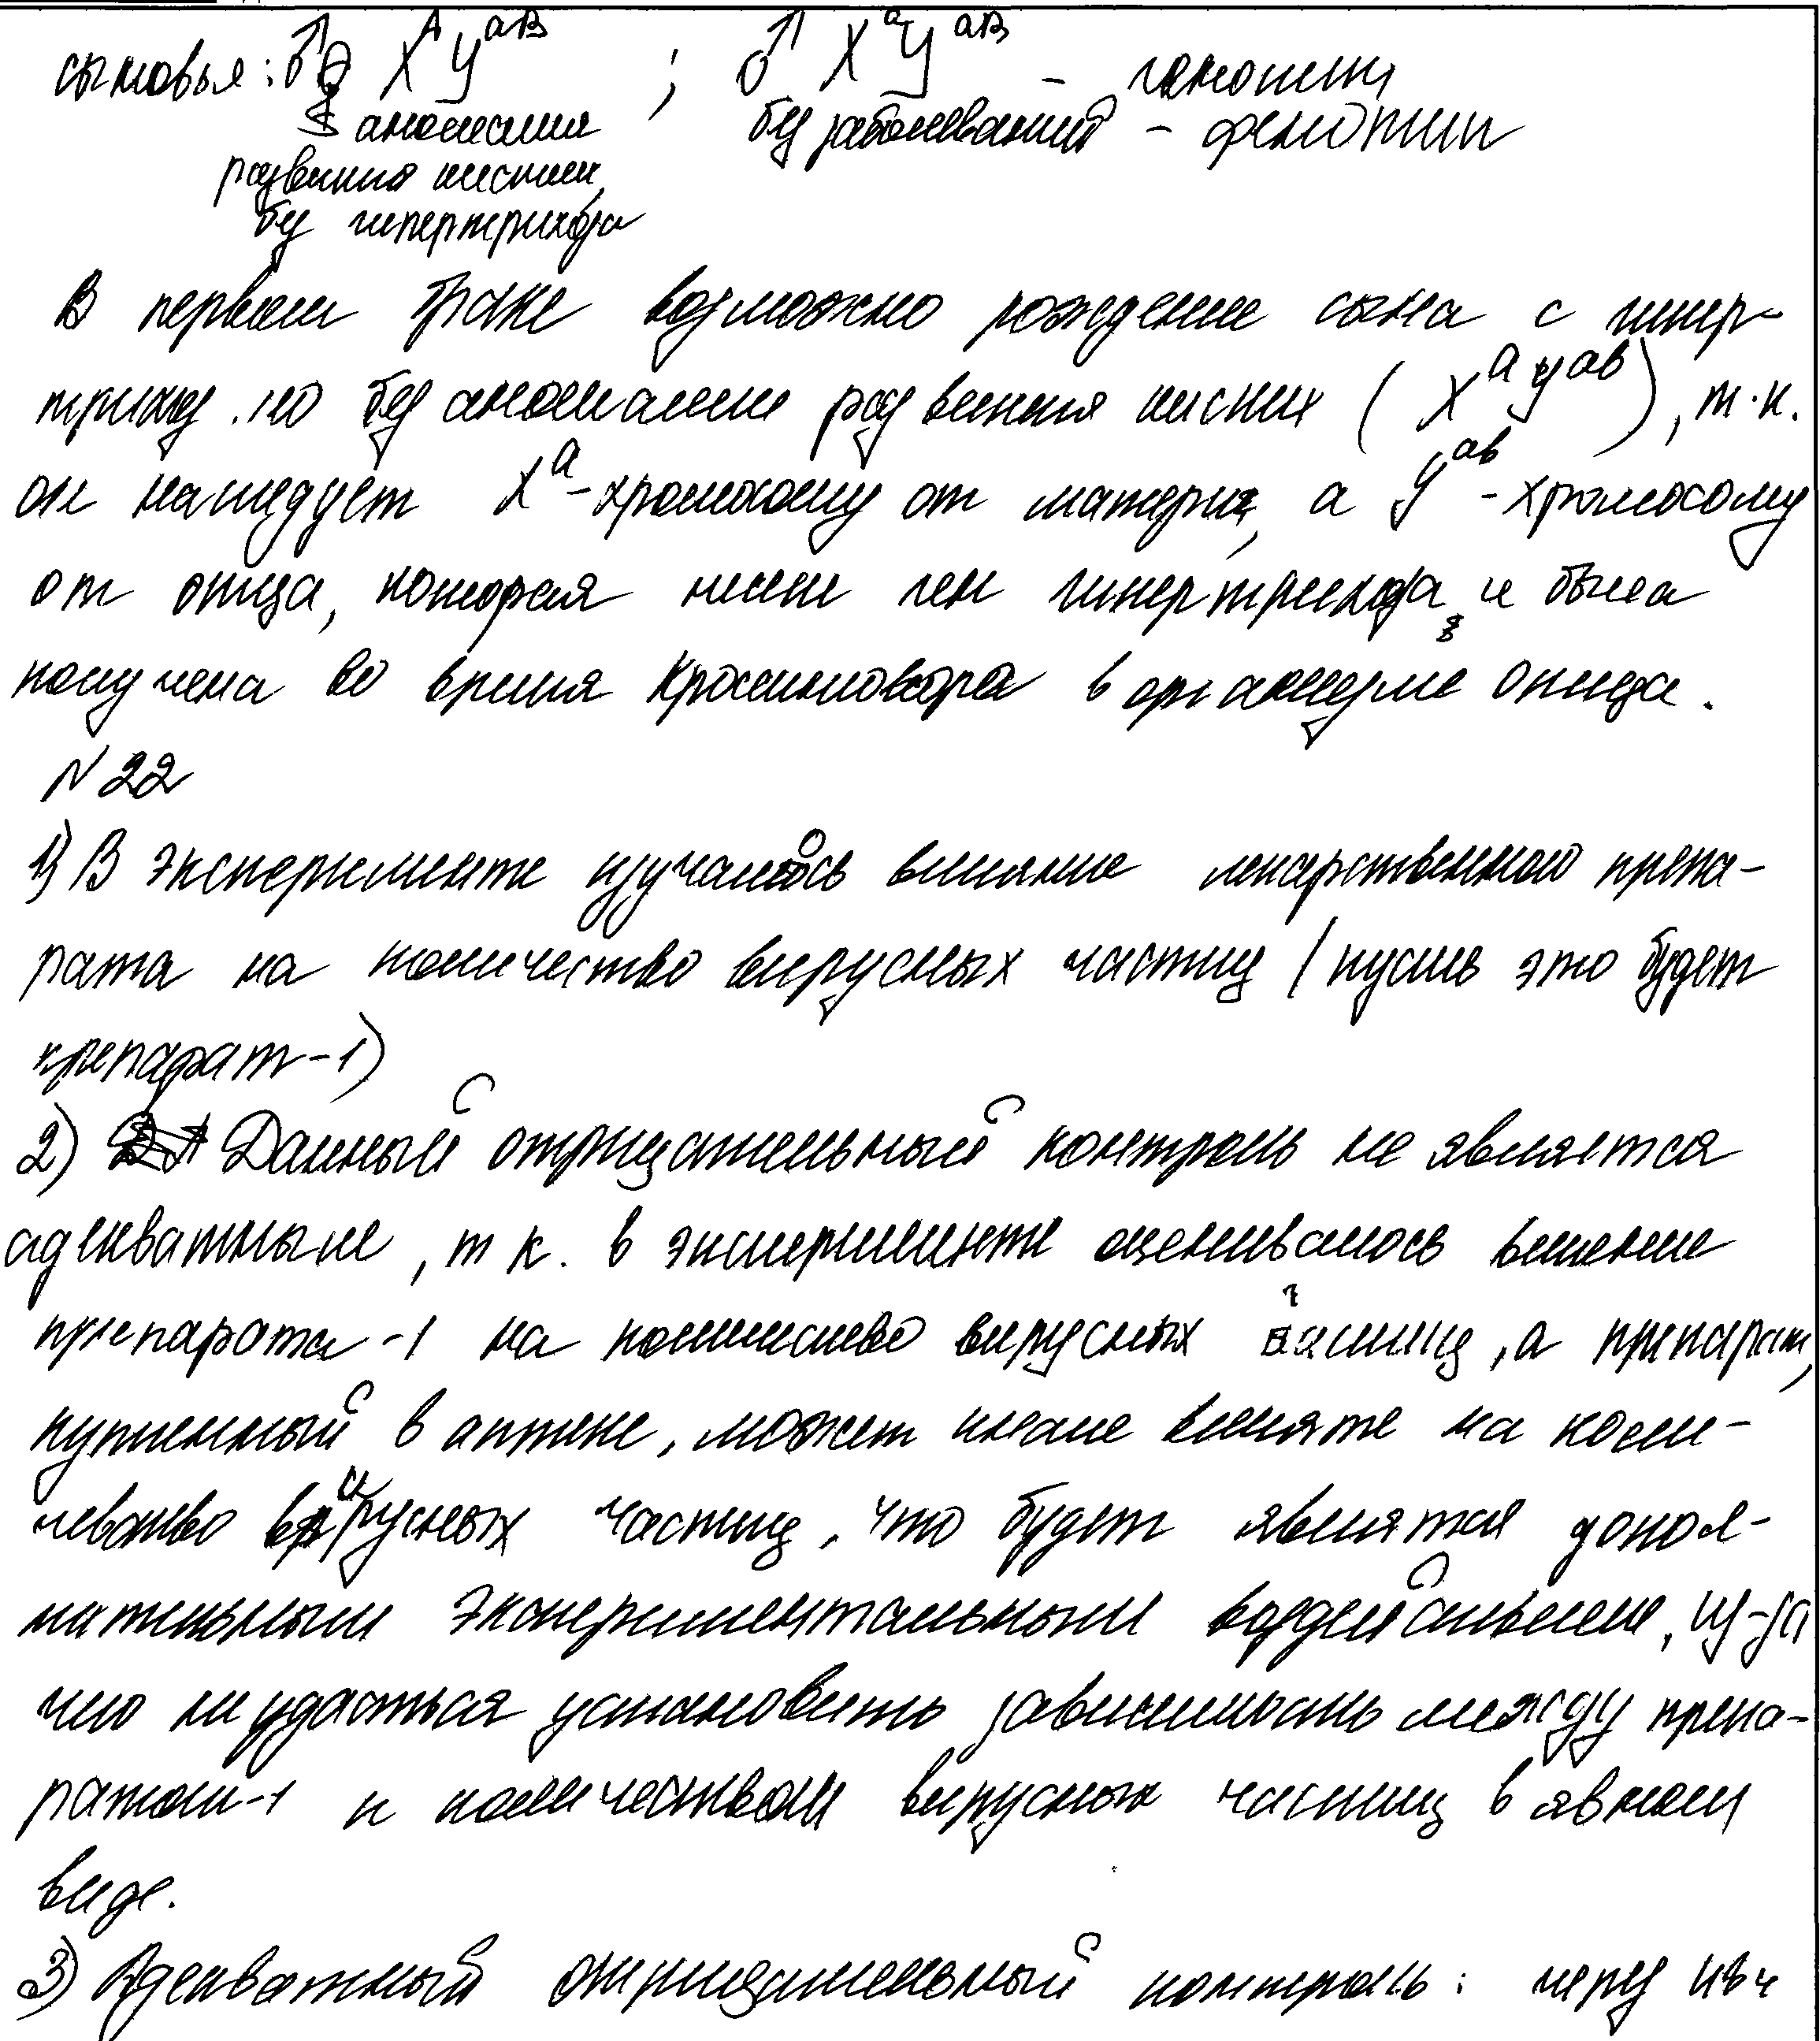 сыновья: ♂ X^A Y^aB ; ♂ X^a Y^aB - генотип
аномалия без заболеваний - фенотип
развития кисти,
без гипертрихоза
В первом браке возможно рождение сына с гипер-
трихоз. но без аномалии развития кистих (X^a Y^ab), т.к.
он наследует X^a-хромосому от матери, а Y^ab-хромосому
от отца, которая имеет ген гипертрихоза и была
получена во время кроссинговера в организме отца.
N 22
1) В эксперименте изучалось влияние лекарственного препа-
рата на количество вирусных частиц (пусть это будет
препарат-1)
2) Данный отрицательный контроль не является
адекватным, т к. в эксперименте оценивалось влияние
препарата-1 на количество вирусных частиц, а препарат,
купленный в аптеке, может иначе влиять на коли-
чество вирусных частиц, что будет являться допол-
нительным экспериментальным воздействием, из-за
чего не удасться установить зависимость между препа-
ратом-1 и количеством вирусных частиц в явном
виде.
3) Адекватный отрицательный контроль: через